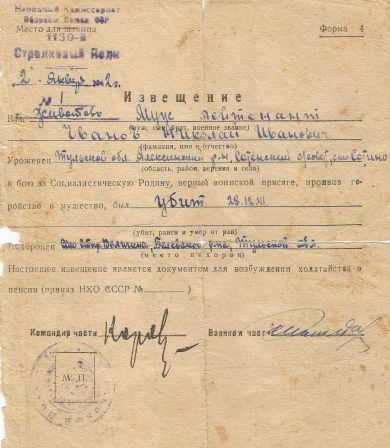 Народный Комиссариат
Обороны Союза ССР
Место для штампа
Форма 4
1130-й
Стрелковый Полк
2 Января 42 г.
№ 1
Извещение
Ваш Муж лейтенант
(муж, сын, брат, военное звание)
Иванов Николай Иванович
(фамилия, имя и отчество)
Уроженец Тульской обл. Алексинский р-н,
(область, район, деревня и село)
в бою за Социалистическую Родину, верный воинской присяге, проявив ге-
ройство и мужество, был убит 28.12.41
(убит, ранен и умер от ран)
Похоронен Белевского р-на, Тульской обл.
(место похорон)
Настоящее извещение является документом для возбуждения ходатайства о
пенсии (приказ НКО СССР № )
Командир части
Военком части
М. П.